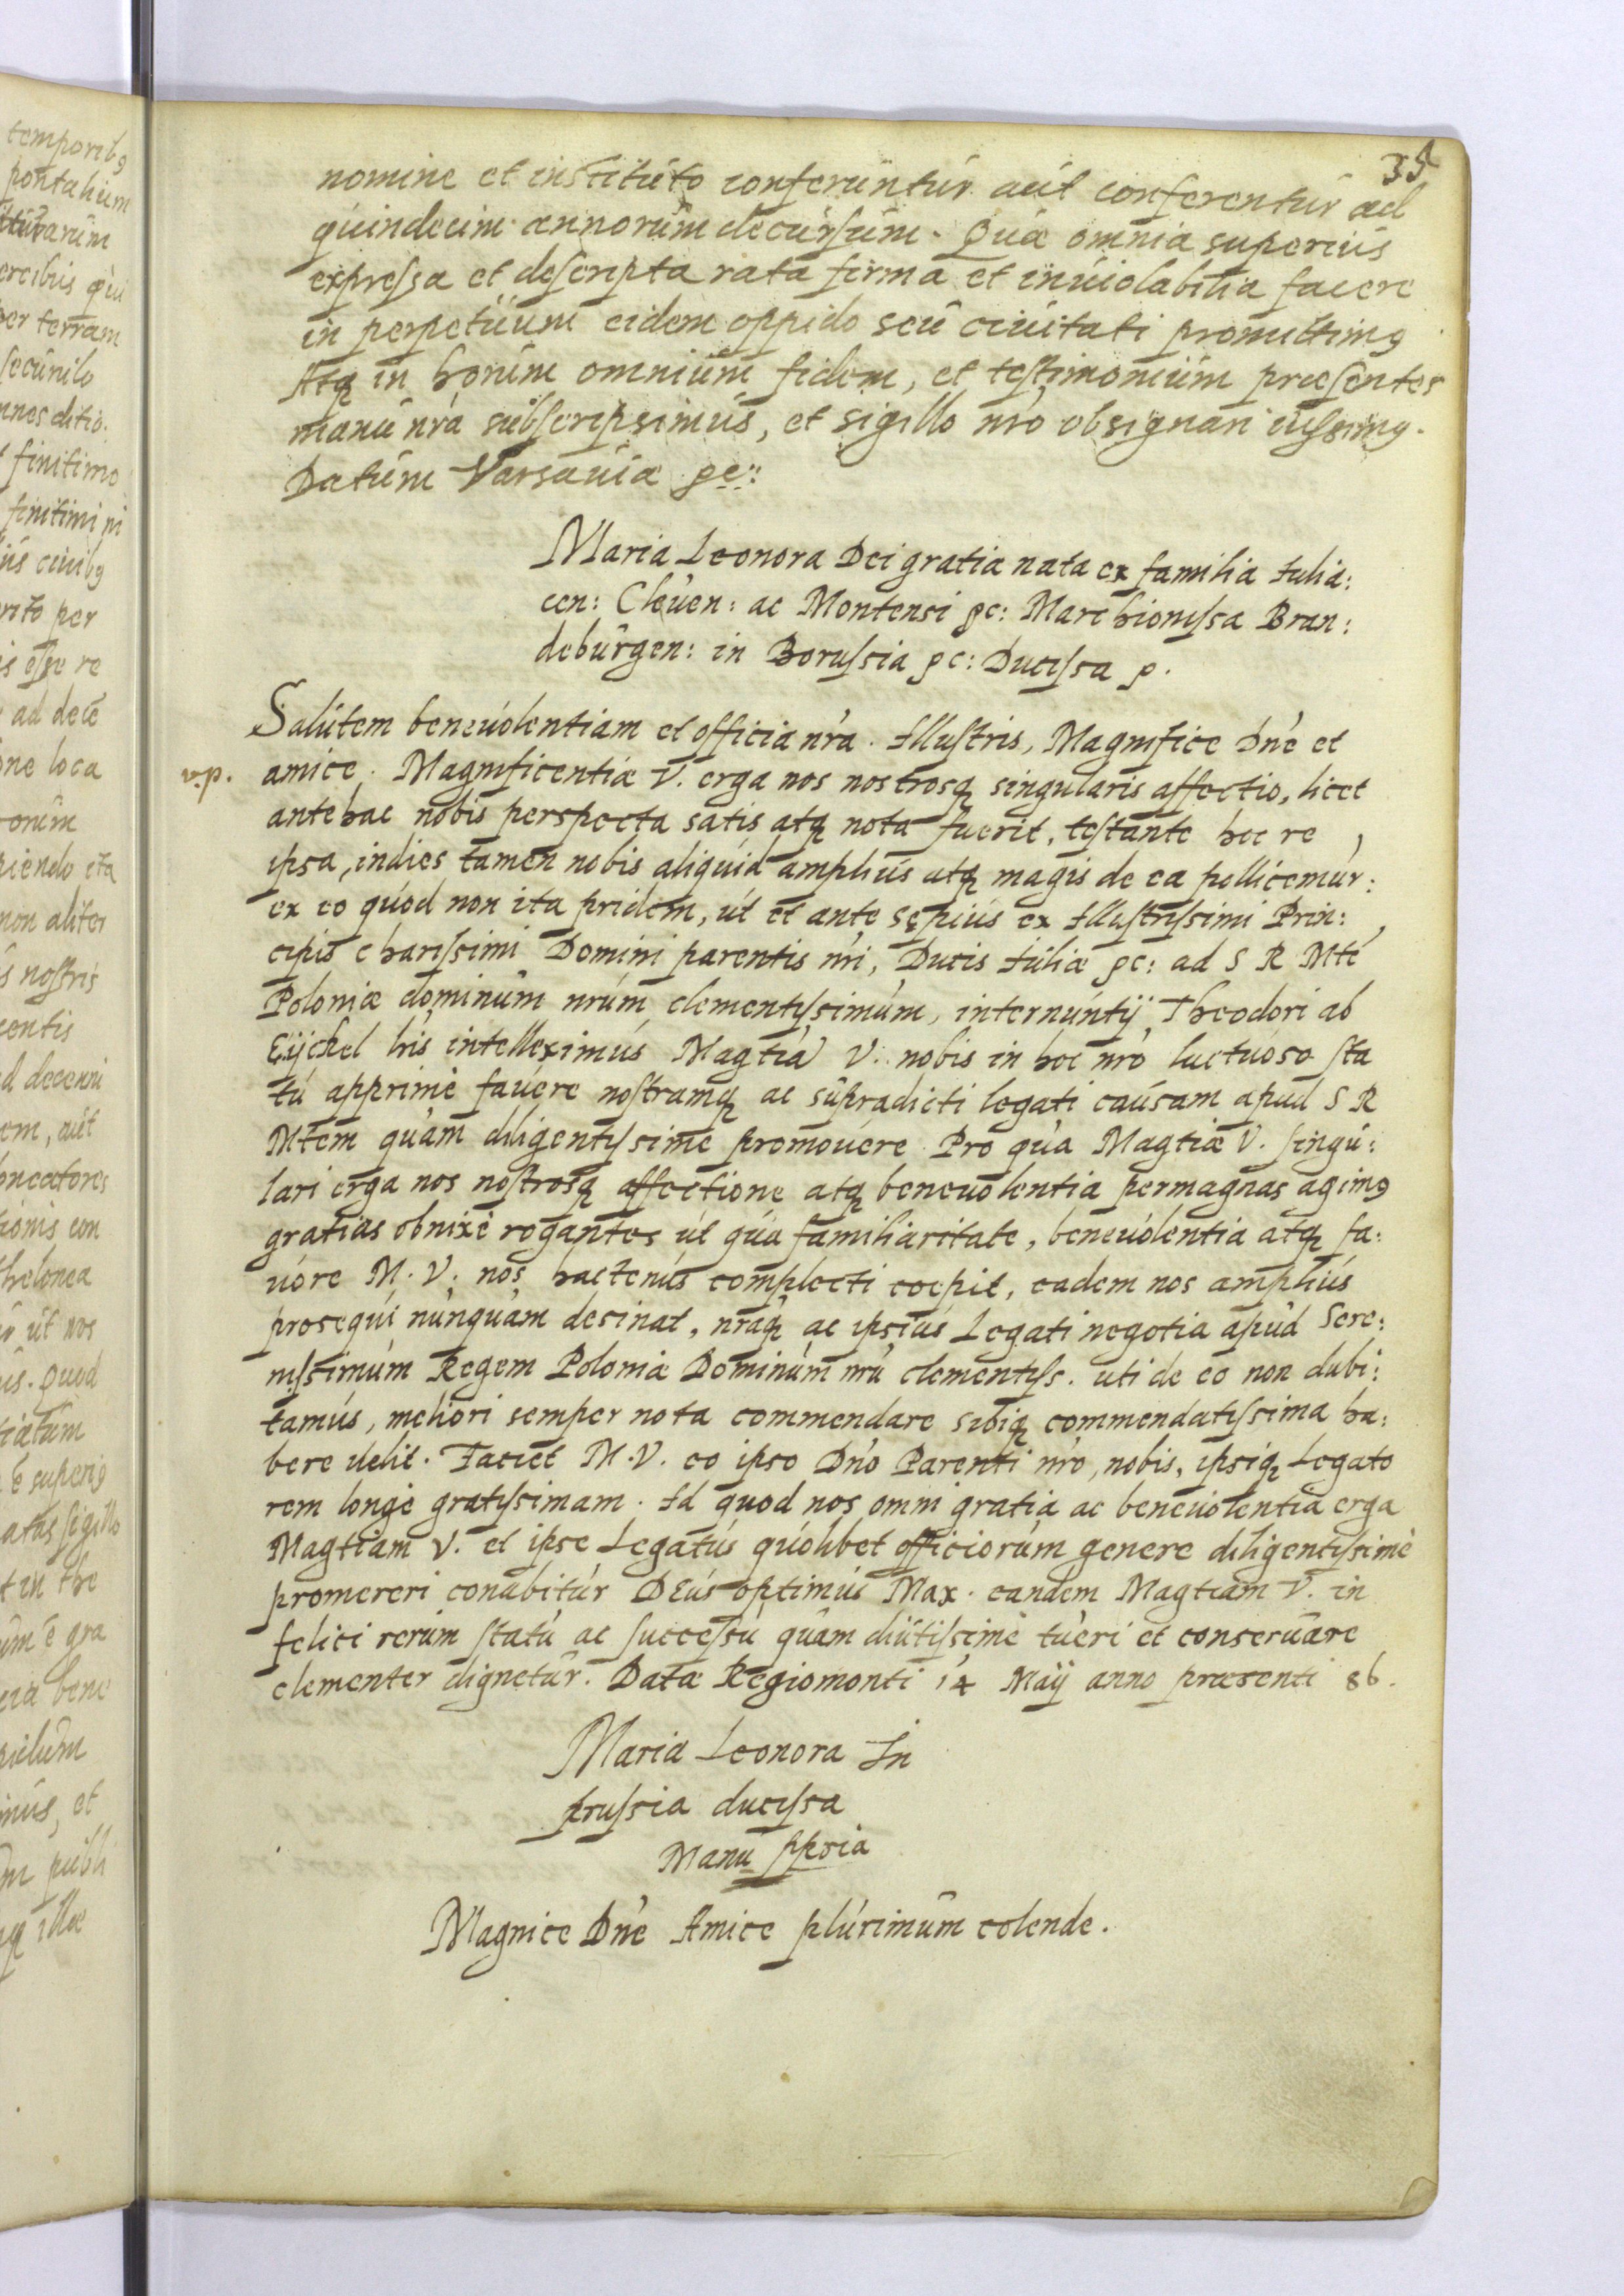 35
nomine et instituto conferuntur aut conferentur ad
quindecim annorum decursum. Quæ omnia superius
expressa et descripta rata firma et inuiolabilia facere
in perpetuum eidem oppido seu ciuitati promittimꝰ
Atqꝫ in horum omnium fidem, et testimonium præsentes
manu nr̄a subscripsimus, et sigillo nr̄o obsignari iussimꝰ.
Datum Varsauiæ &c:
Maria Leonora Dei gratia nata ex familia Iulia:
cen: Cleuen: ac Montensi &c: Marchionissa Bran:
deburgen: in Borussia &c: Ducissa &.
Salutem beneuolentiam et officia nr̄a. Illustris, Magnifice Dn̄e et
v.p. amice. Magnificentiæ V. erga nos nostrosqꝫ singularis affectio, licet
antehac nobis perspecta satis atqꝫ nota fuerit, testante hoc re
ipsa, indies tamen nobis aliquid amplius atqꝫ magis de ea pollicemur:
ex eo quod non ita pridem, ut et ante sępius ex Illustrissimi Prin:
cipis charissimi Domini parentis nr̄i, Ducis Iuliæ &c: ad S R Mtē
Poloniæ dominum nr̄um clementissimum, internuntij Theodori ab
Eijckel lris intelleximus Magtiā V. nobis in hoc nr̄o luctuoso sta
tu apprimè fauere nostramqꝫ ac supradicti legati causam apud S R
Mtem quam diligentissime promouere. Pro qua Magtiæ V. singu:
lari erga nos nostrosqꝫ affectione atqꝫ beneuolentia permagnas agimꝰ
gratias obnixè rogantes ut qua familiaritate, beneuolentia atqꝫ fa:
uore M. V. nos hactenus complecti coepit, eadem nos amplius
prosequi nunquam desinat, nr̄aqꝫ ac ipsius Legati negotia apud Sere:
nissimum Regem Poloniæ Dominum nr̄u clementiss. uti de eo non dubi:
tamus, meliori semper nota commendare sibiqꝫ commendatissima ha:
bere uelit. Faciet M.V. eo ipso Dn̄o Parenti nr̄o, nobis, ipsiqꝫ Legato
rem longè gratissimam. Id quod nos omni gratia ac beneuolentia erga
Magtiam V. et ipse Legatus quolibet officiorum genere diligentissimè
promereri conabitur DEus optimus Max. eandem Magtiam V. in
felici rerum statu ac successu quàm diutissimè tueri et conseruare
clementer dignetur. Datæ Regiomonti 14 Maij anno præsenti 86.
Maria Leonora In
prussia ducissa
Manu ppria
Magnice Dn̄e Amice plurimum colende.